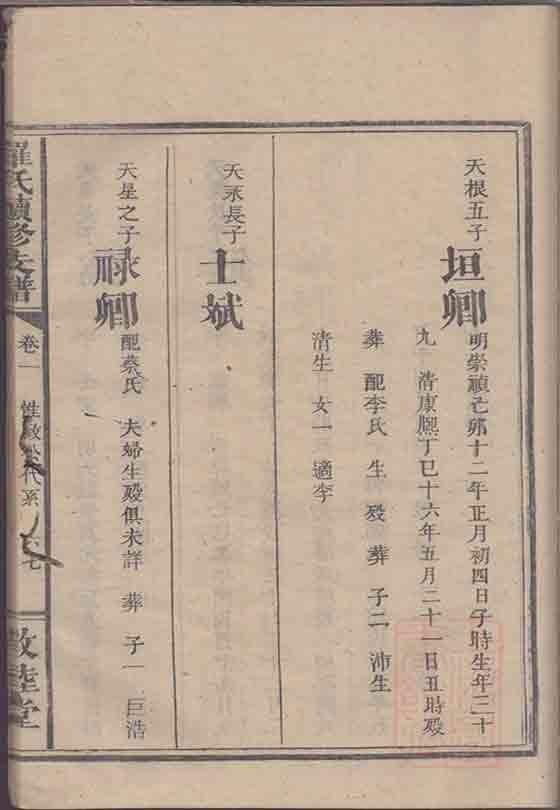 天根五子
垣卿
明崇禎己卯十二年正月初四日子時生年三十
九　清康熙丁巳十六年五月二十一日丑時殁
葬　配李氏　生　殁　葬　子二　沛生
清生　女一　適李
天永長子
士斌
天星之子
祿卿
配蔡氏　夫婦生殁俱未詳　葬　子一　巨浩
羅氏續修支譜
卷一
代系
六七
敦睦堂